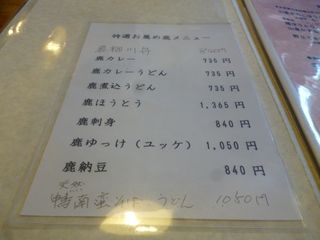 特選お薦め鹿メニュー
鹿カレー 735円
鹿カレーうどん 735円
鹿煮込うどん 735円
鹿ほうとう 1,365円
鹿刺身 840円
鹿ゆっけ（ユッケ） 1,050円
鹿納豆 840円
天然
鴨南蛮そば うどん 1050円